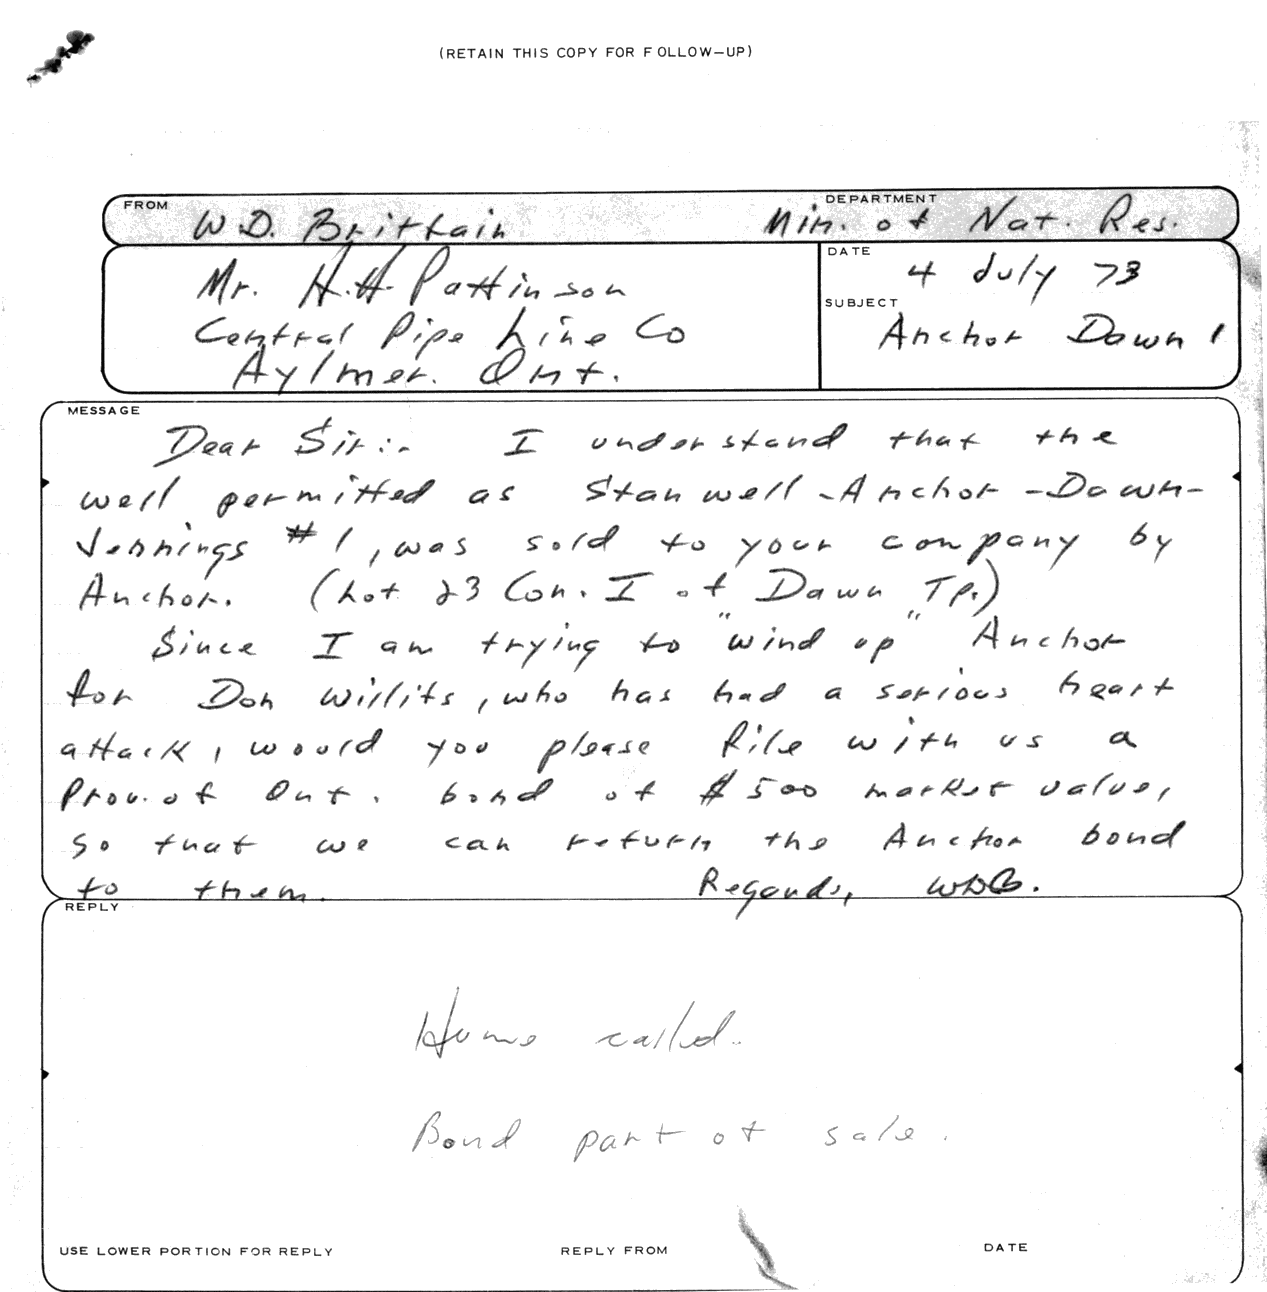 (RETAIN THIS COPY FOR FOLLOW-UP)
FROM W.D. Brittain DEPARTMENT Min. of Nat. Res.
Mr. H.H. Pattinson
Central Pipe Line Co
Aylmer. Ont.
DATE 4 July 73
SUBJECT
Anchor Dawn 1
MESSAGE
Dear Sir:- I understand that the
well permitted as Stanwell-Anchor-Dawn-
Jennings #1, was sold to your company by
Anchor. (Lot 23 Con. I of Dawn Tp.)
Since I am trying to "wind up" Anchor
for Don Willits, who has had a serious heart
attack, would you please file with us a
Prov. of Ont. bond of $500 market value,
so that we can return the Anchor bond
to them. Regards, WDB.
REPLY
Hume called.
Bond part of sale.
USE LOWER PORTION FOR REPLY REPLY FROM DATE